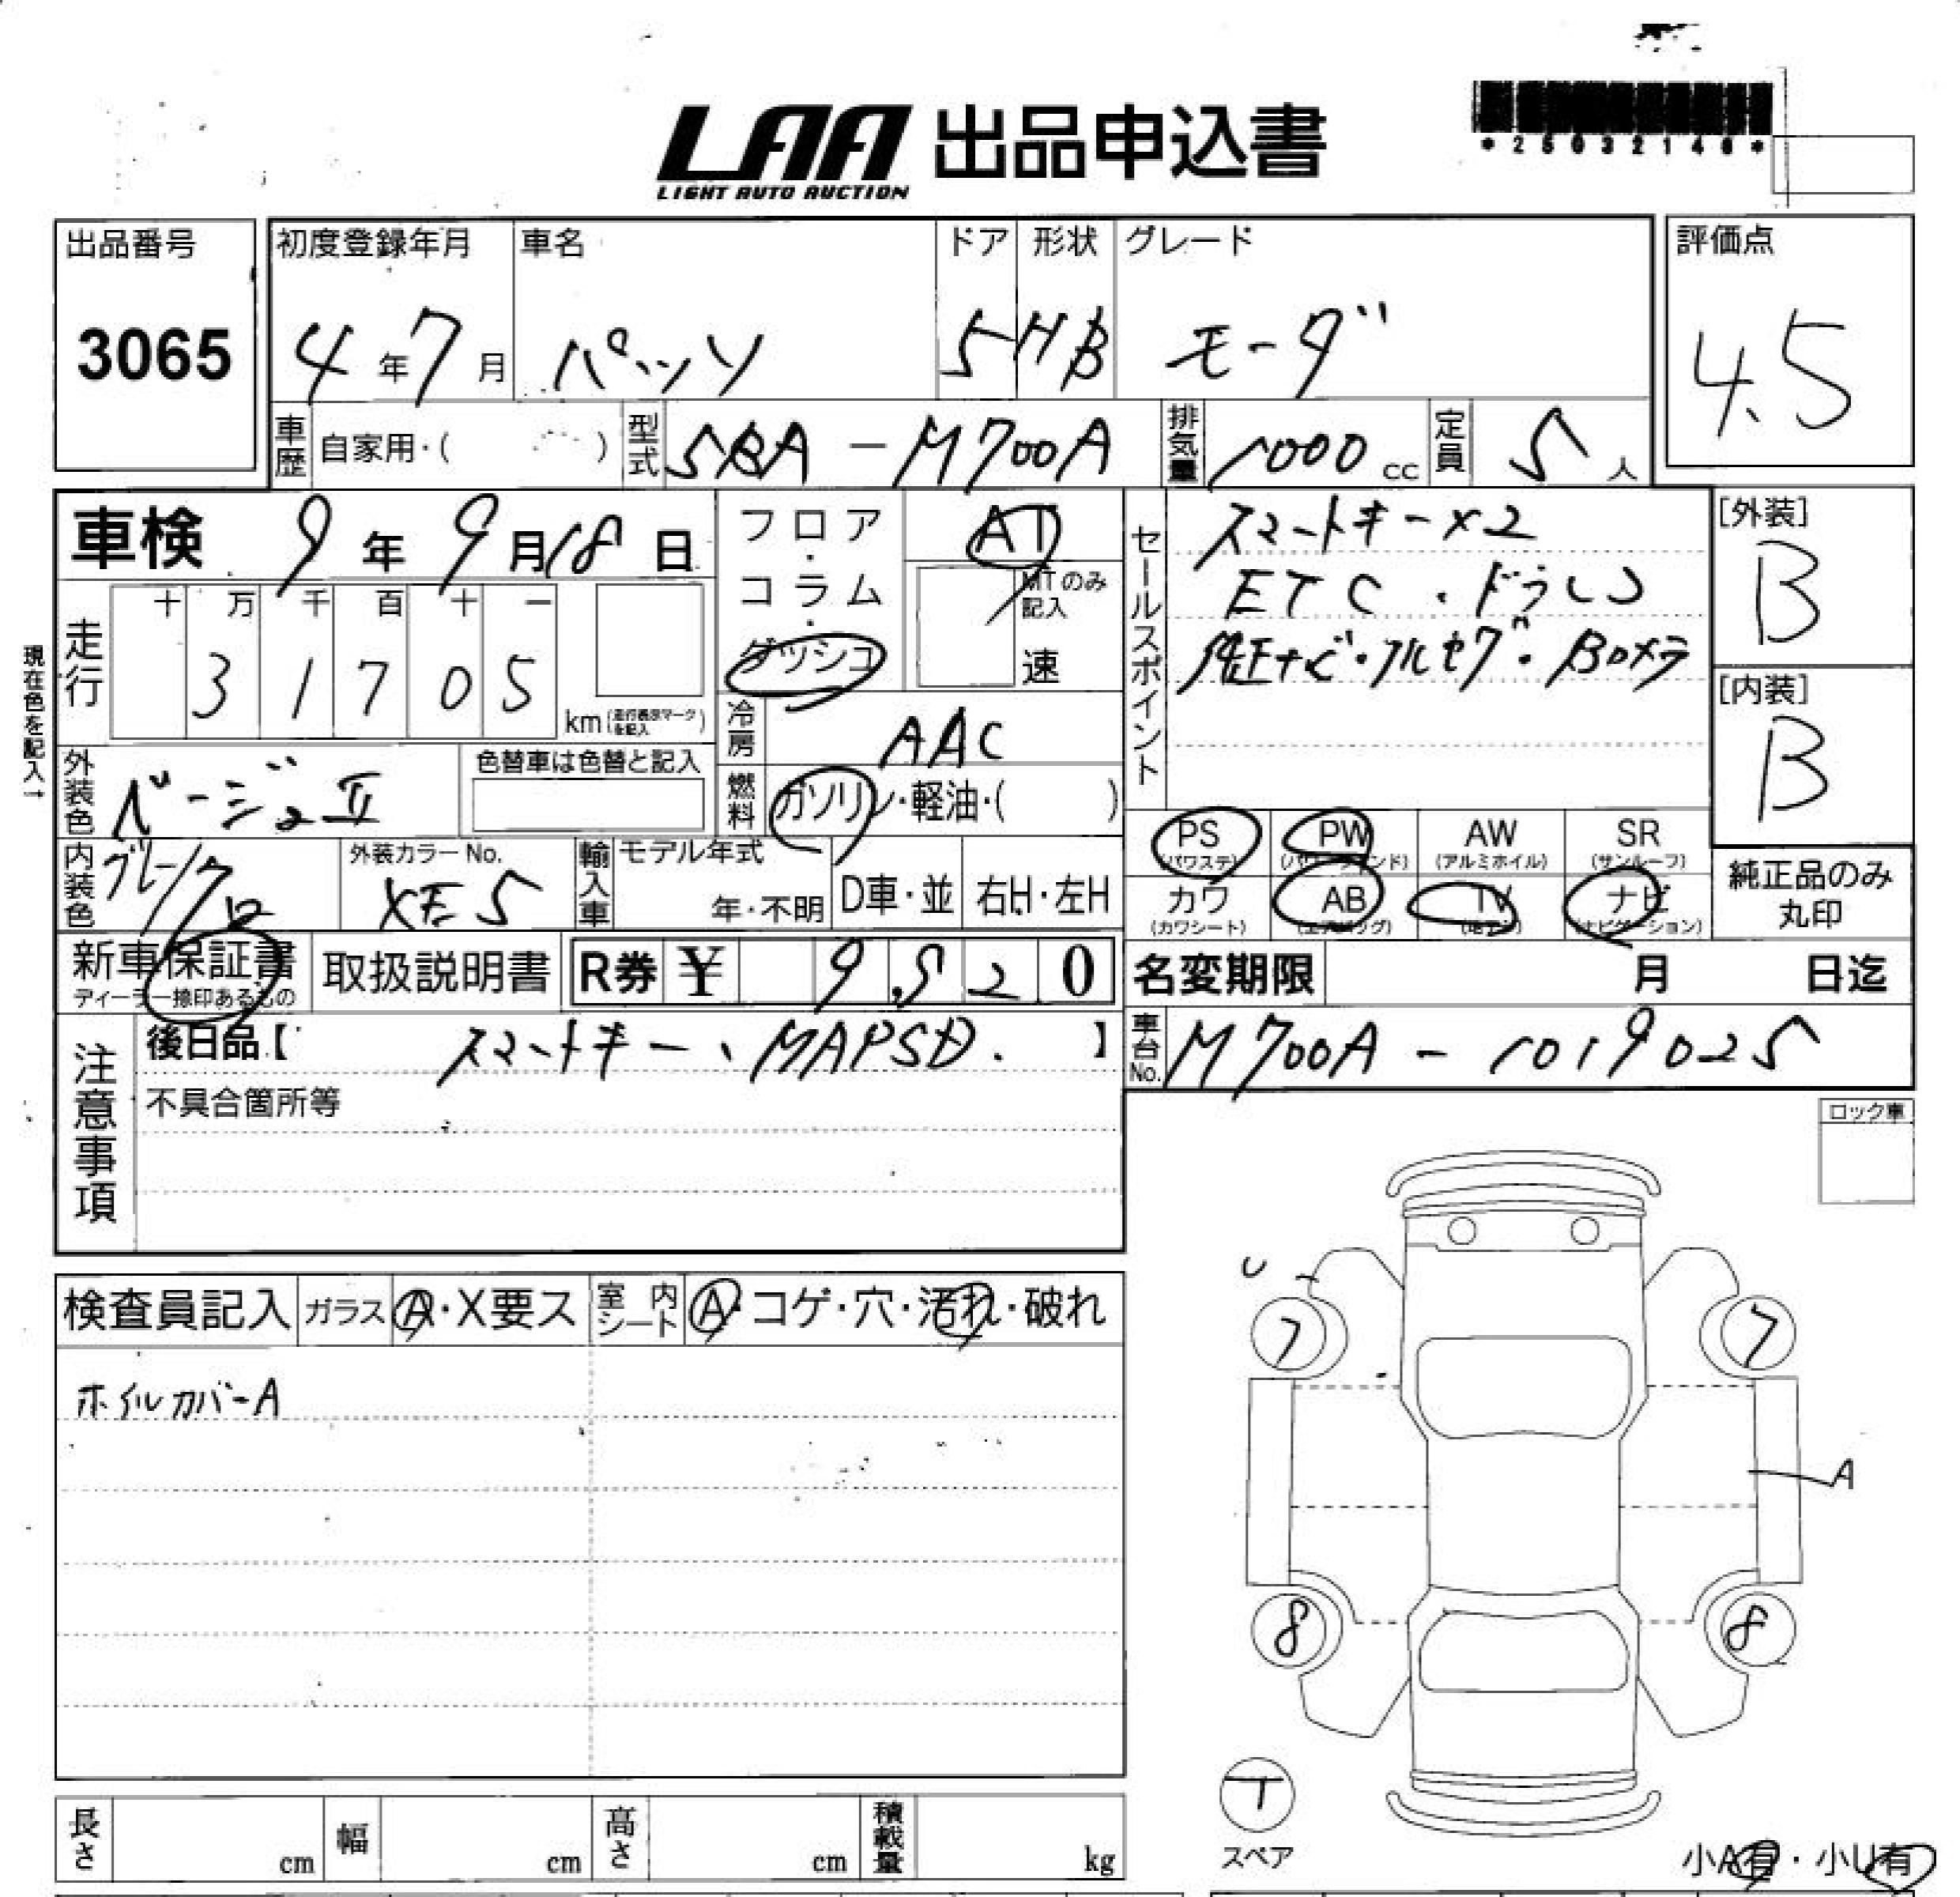 *25032146*
LAA 出品申込書
LIGHT AUTO AUCTION
出品番号
3065
初度登録年月
4年7月
車名
パッソ
ドア
5
形状
HB
グレード
モーダ
評価点
4.5
車歴
自家用・( )
型式
5BA-M700A
排気量
1000cc
定員
5人
車検 9年9月18日
フロア・コラム・ダッシュ
AT
MTのみ記入
速
セールスポイント
スマートキー×2
ETC・ドラレコ
純正ナビ・フルセグ・Bカメラ
[外装]
B
[内装]
B
現在色を記入↑
走行
十 万 千 百 十 一
3 1 7 0 5
km
冷房
AAC
外装色
ベージュII
色替車は色替と記入
燃料
ガソリン・軽油・( )
PS
(パワステ)
PW
AW
(アルミホイル)
SR
(サンルーフ)
カワ
(カワシート)
AB
(エアバッグ)
TV
ナビ
(ナビゲーション)
純正品のみ
丸印
内装色
グレー/クロ
外装カラーNo.
XE5
輸入車
モデル年式
年・不明
D車・並
右H・左H
新車保証書
ディーラー捺印あるもの
取扱説明書
R券 ¥ 9,520
名変期限 月 日迄
注意事項
後日品【 スマートキー、MAPSD. 】
車台No.
M700A-1019025
不具合箇所等
ロック車
検査員記入
ガラス
A・X要ス
室内シート
A・コゲ・穴・汚れ・破れ
ホイルカバーA
U
7
7
A
8
8
T
スペア
小A有・小U有
長さ cm
幅 cm
高さ cm
積載量 kg